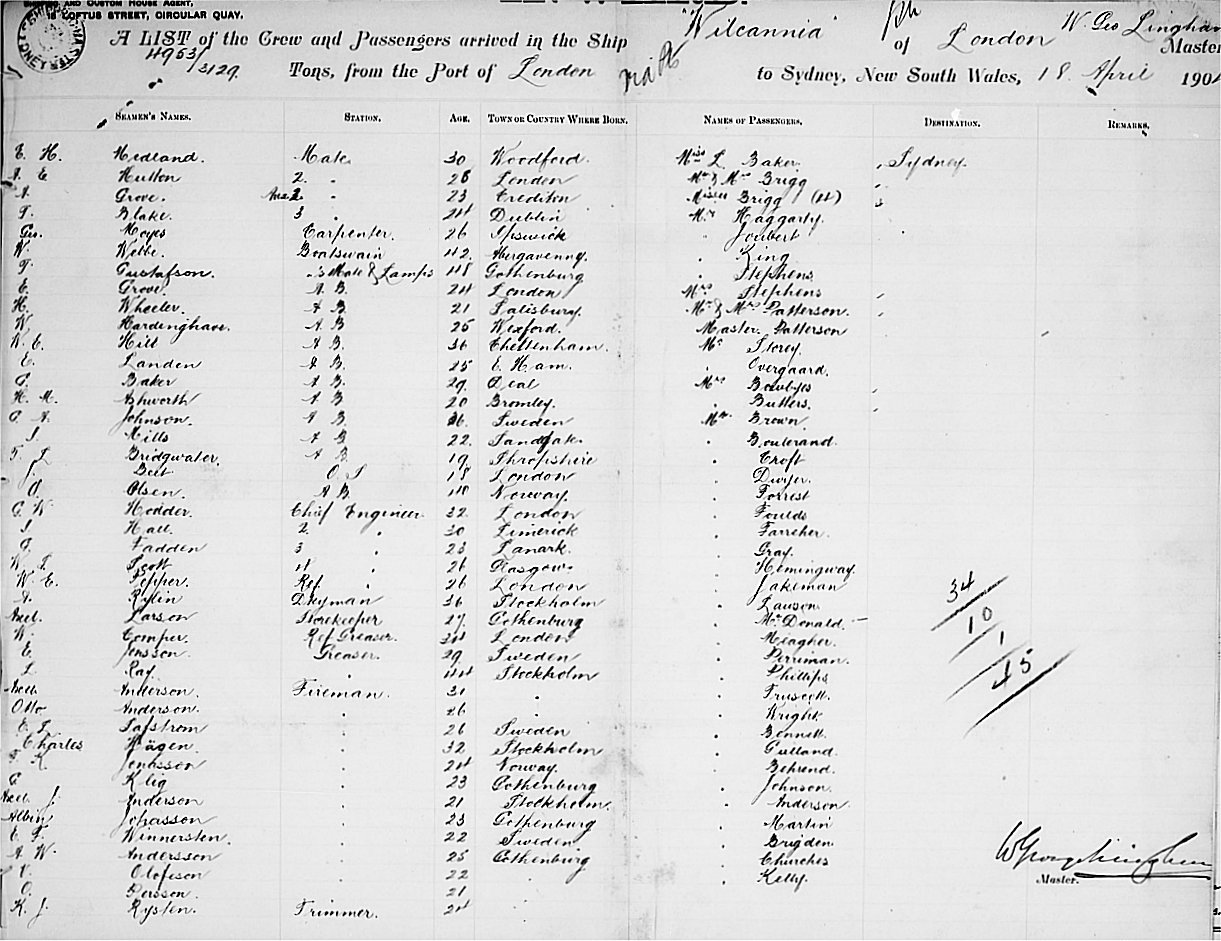 AND CUSTOM HOUSE AGENT,
15 LOFTUS STREET, CIRCULAR QUAY,
A LIST of the Crew and Passengers arrived in the Ship "Wilcannia" of London W. Geo Lingham Master
4953/3129 Tons, from the Port of London to Sydney, New South Wales, 18 April 190
SEAMEN'S NAMES. STATION. AGE. TOWN OR COUNTRY WHERE BORN. NAMES OF PASSENGERS. DESTINATION. REMARKS.
E. H. Medland. Mate 30 Woodford. Miss L. Baker Sydney.
A. E Hutton 2. " 28 London Mr & Mrs Brigg
A Grove. " 23 Crediton Misses Brigg (4)
T. Blake. 3 " 24 Dublin Mr Haggarty.
Geo. Moyes Carpenter. 26 Ipswich " Joubert
W. Webbe. Boatswain 42. Abergavenny. " King
T. Gustafson. "s Mate & Lamps 48 Gothenburg " Stephens
E. Grove. A. B. 24 London Mrs Stephens
H. Wheeler. A B. 21 Salisbury. Mr & Mrs Patterson.
W. Hardinghave. A B 25 Wexford. Master. Patterson
W. E. Hill A B. 36 Cheltenham. Mr Storey.
E. Landen A B. 25 E. Ham. " Overgaard.
Baker A B. 29. Deal Mrs Bowbyes
H. M. Ashworth A B. 20 Bromley. " Butters.
C. A. Johnson. A B. 36. Sweden Mr. Brown.
J. Mills A B 22. Sandgate. " Boulerand.
T. L Bridgwater. A B 19. Shropshire " Croft
J. Beet O. S 18 London " Dwyer.
O. Olsen. A B. 40 Norway. " Forrest
C. W. Hodder. Chief Engineer 32. London " Foulds
J. Hall. 2. " 30 Limerick " Farreher.
Fadden 3 " 23 Lanark. " Gray.
W. S. Scott 4 " 26 Glasgow. " Hemingway.
W. E. Pepper. Ref. " 26 London " Jakeman
A. Rylin Dkyman 36 Stockholm " Lauson.
Axel. Larson Storekeeper 27. Gothenburg " McDonald.
W. Comper. Ref Greaser. 34 London " Meagher.
E. Jonsson. Greaser. 29. Sweden " Perriman.
L. Ray. " 44 Stockholm " Phillips
Axel. Anderson. Fireman. 31 " " Truscott.
Otto Anderson. " 26 " " Wright
Safstrom " 26 Sweden " Bennett.
Charles Hägen. " 32 Stockholm " Gulland.
K. Jonasson " 24 Norway. " Behrend.
G. Klig " 23 Gothenburg " Johnson.
Axel. J. Anderson " 21 Stockholm. " Anderson
Albin Johasson " 23 Gothenburg " Martin
E. F. Winnersten. " 22 Sweden " Brigden.
A W. Andersson " 25 Gothenburg " Churches
Olofsson " 22 " " Kelly.
O. Persson. " 21 "
K. J. Rysten. Trimmer. 24 "
34
10
1
45
W George Lingham
Master.